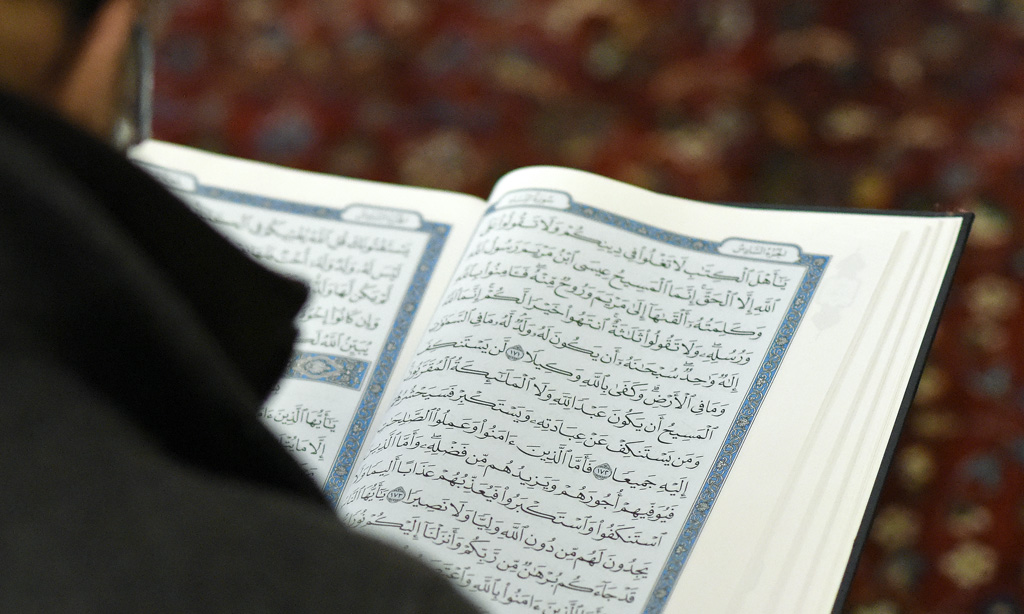 سُورَةُ النِّسَاءِ
الجُزْءُ السَّادِسُ
يَٰٓأَهْلَ ٱلْكِتَٰبِ لَا تَغْلُوا۟ فِى دِينِكُمْ وَلَا تَقُولُوا۟ عَلَى
ٱللَّهِ إِلَّا ٱلْحَقَّ إِنَّمَا ٱلْمَسِيحُ عِيسَى ٱبْنُ مَرْيَمَ رَسُولُ ٱللَّهِ
وَكَلِمَتُهُۥٓ أَلْقَىٰهَآ إِلَىٰ مَرْيَمَ وَرُوحٌ مِّنْهُ فَـَٔامِنُوا۟ بِٱللَّهِ
وَرُسُلِهِۦ وَلَا تَقُولُوا۟ ثَلَٰثَةٌ ٱنتَهُوا۟ خَيْرًا لَّكُمْ إِنَّمَا ٱللَّهُ
إِلَٰهٌ وَٰحِدٌ سُبْحَٰنَهُۥٓ أَن يَكُونَ لَهُۥ وَلَدٌ لَّهُۥ مَا فِى ٱلسَّمَٰوَٰتِ
وَمَا فِى ٱلْأَرْضِ وَكَفَىٰ بِٱللَّهِ وَكِيلًا ١٧١ لَّن يَسْتَنكِفَ
ٱلْمَسِيحُ أَن يَكُونَ عَبْدًا لِّلَّهِ وَلَا ٱلْمَلَٰٓئِكَةُ ٱلْمُقَرَّبُونَ
وَمَن يَسْتَنكِفْ عَنْ عِبَادَتِهِۦ وَيَسْتَكْبِرْ فَسَيَحْشُرُهُمْ
إِلَيْهِ جَمِيعًا ١٧٢ فَأَمَّا ٱلَّذِينَ ءَامَنُوا۟ وَعَمِلُوا۟ ٱلصَّٰلِحَٰتِ
فَيُوَفِّيهِمْ أُجُورَهُمْ وَيَزِيدُهُم مِّن فَضْلِهِۦ وَأَمَّا ٱلَّذِينَ
ٱسْتَنكَفُوا۟ وَٱسْتَكْبَرُوا۟ فَيُعَذِّبُهُمْ عَذَابًا أَلِيمًا وَلَا
يَجِدُونَ لَهُم مِّن دُونِ ٱللَّهِ وَلِيًّا وَلَا نَصِيرًا ١٧٣ يَٰٓأَيُّهَا
قَدْ جَآءَكُم بُرْهَٰنٌ مِّن رَّبِّكُمْ وَأَنزَلْنَآ إِلَيْكُمْ نُورًا
ٱلَّذِينَ ءَامَنُوا۟ بِٱللَّهِ
يَسْتَفْتُونَكَ قُلِ ٱللَّهُ يُفْتِيكُمْ فِى
وَإِن كَانُوٓا۟
يُبَيِّنُ ٱللَّهُ
يَٰٓأَيُّهَا ٱلَّذِينَ
إِلَّا مَا